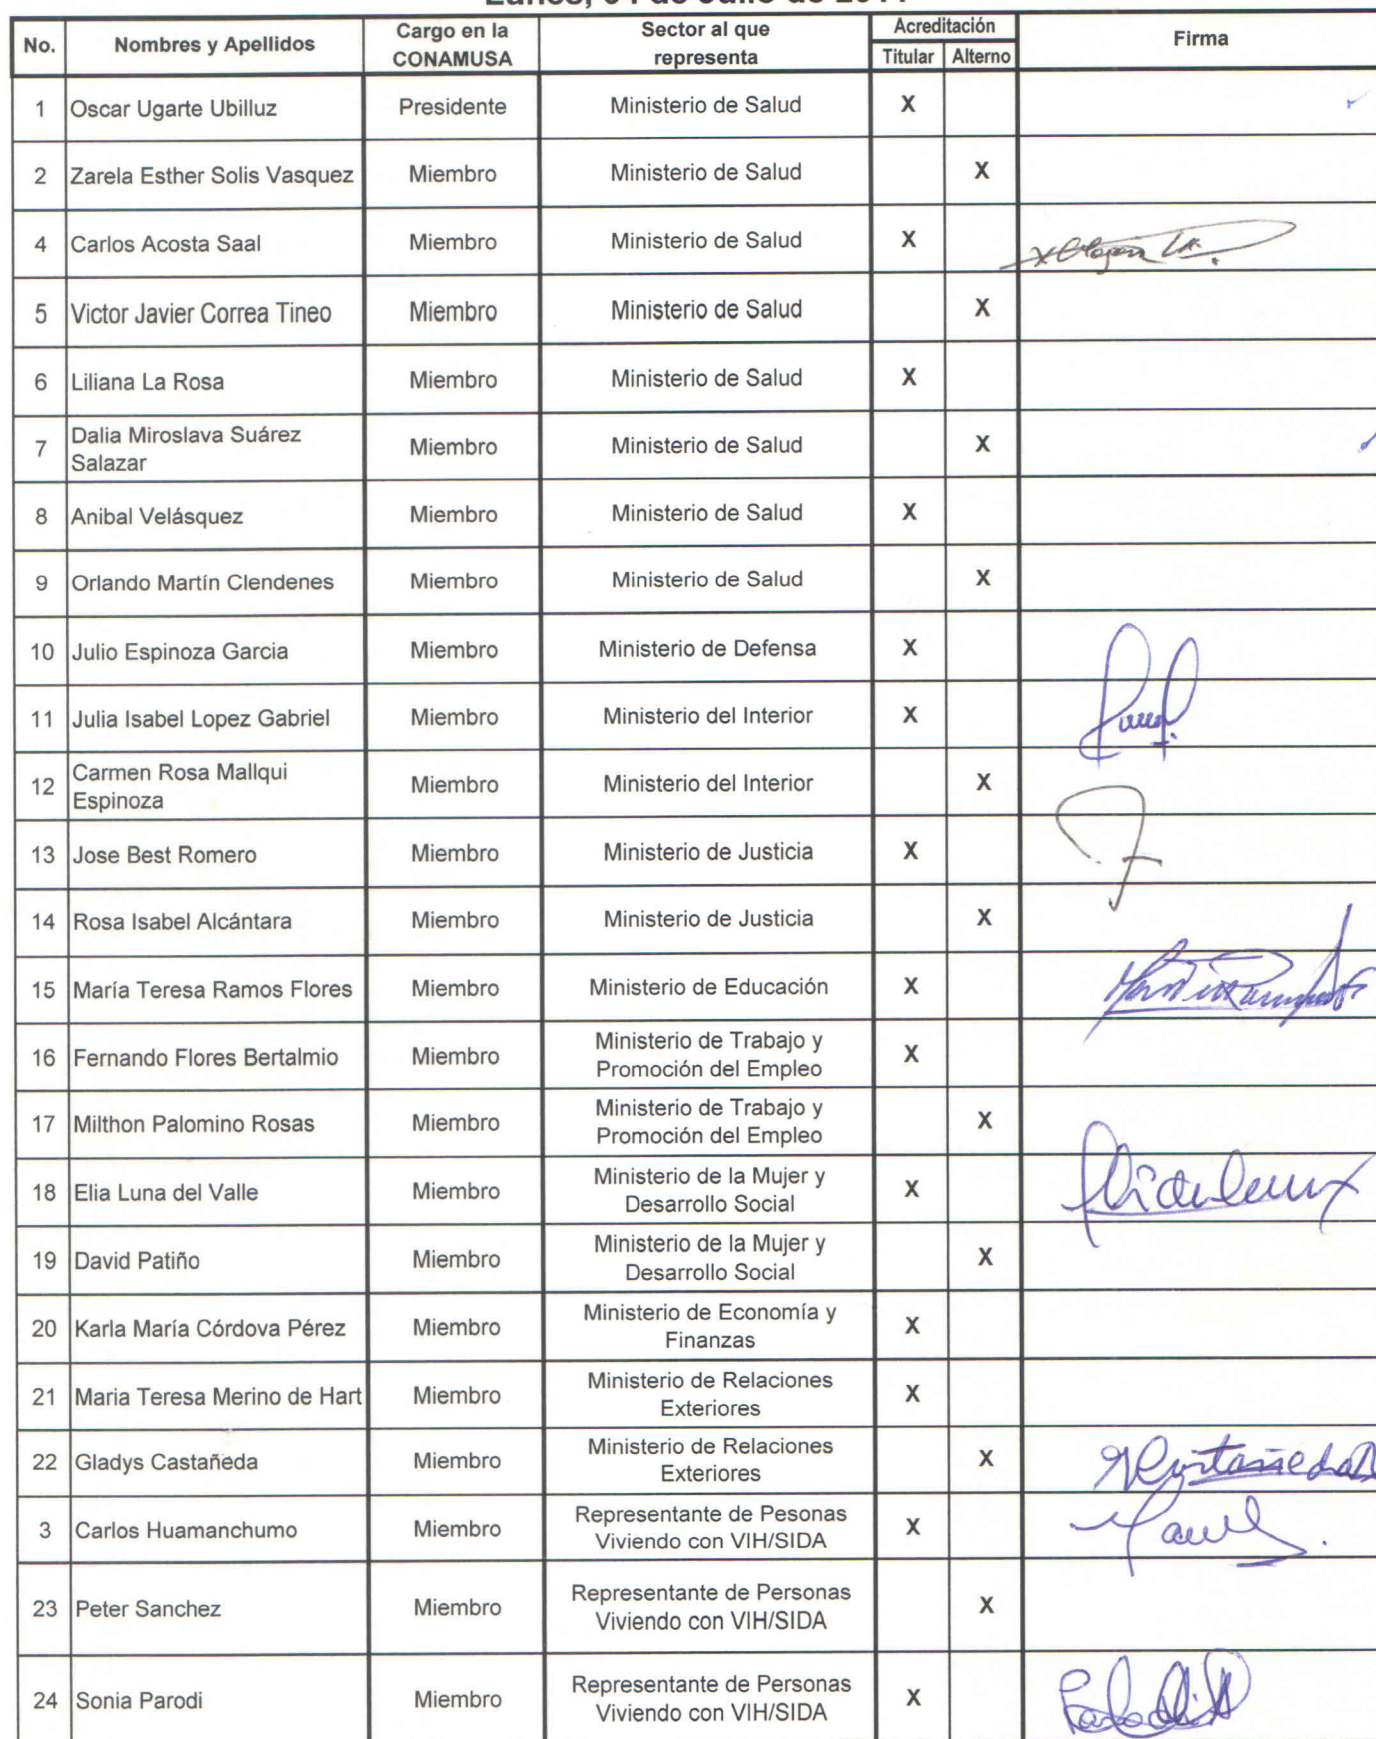 Lunes, 04 de Julio de 2011
No. Nombres y Apellidos Cargo en la CONAMUSA Sector al que representa Acreditación Titular Alterno Firma
1 Oscar Ugarte Ubilluz Presidente Ministerio de Salud X
2 Zarela Esther Solis Vasquez Miembro Ministerio de Salud X
4 Carlos Acosta Saal Miembro Ministerio de Salud X
5 Victor Javier Correa Tineo Miembro Ministerio de Salud X
6 Liliana La Rosa Miembro Ministerio de Salud X
7 Dalia Miroslava Suárez Salazar Miembro Ministerio de Salud X
8 Anibal Velásquez Miembro Ministerio de Salud X
9 Orlando Martín Clendenes Miembro Ministerio de Salud X
10 Julio Espinoza Garcia Miembro Ministerio de Defensa X
11 Julia Isabel Lopez Gabriel Miembro Ministerio del Interior X
12 Carmen Rosa Mallqui Espinoza Miembro Ministerio del Interior X
13 Jose Best Romero Miembro Ministerio de Justicia X
14 Rosa Isabel Alcántara Miembro Ministerio de Justicia X
15 María Teresa Ramos Flores Miembro Ministerio de Educación X
16 Fernando Flores Bertalmio Miembro Ministerio de Trabajo y Promoción del Empleo X
17 Milthon Palomino Rosas Miembro Ministerio de Trabajo y Promoción del Empleo X
18 Elia Luna del Valle Miembro Ministerio de la Mujer y Desarrollo Social X
19 David Patiño Miembro Ministerio de la Mujer y Desarrollo Social X
20 Karla María Córdova Pérez Miembro Ministerio de Economía y Finanzas X
21 Maria Teresa Merino de Hart Miembro Ministerio de Relaciones Exteriores X
22 Gladys Castañeda Miembro Ministerio de Relaciones Exteriores X
3 Carlos Huamanchumo Miembro Representante de Pesonas Viviendo con VIH/SIDA X
23 Peter Sanchez Miembro Representante de Personas Viviendo con VIH/SIDA X
24 Sonia Parodi Miembro Representante de Personas Viviendo con VIH/SIDA X